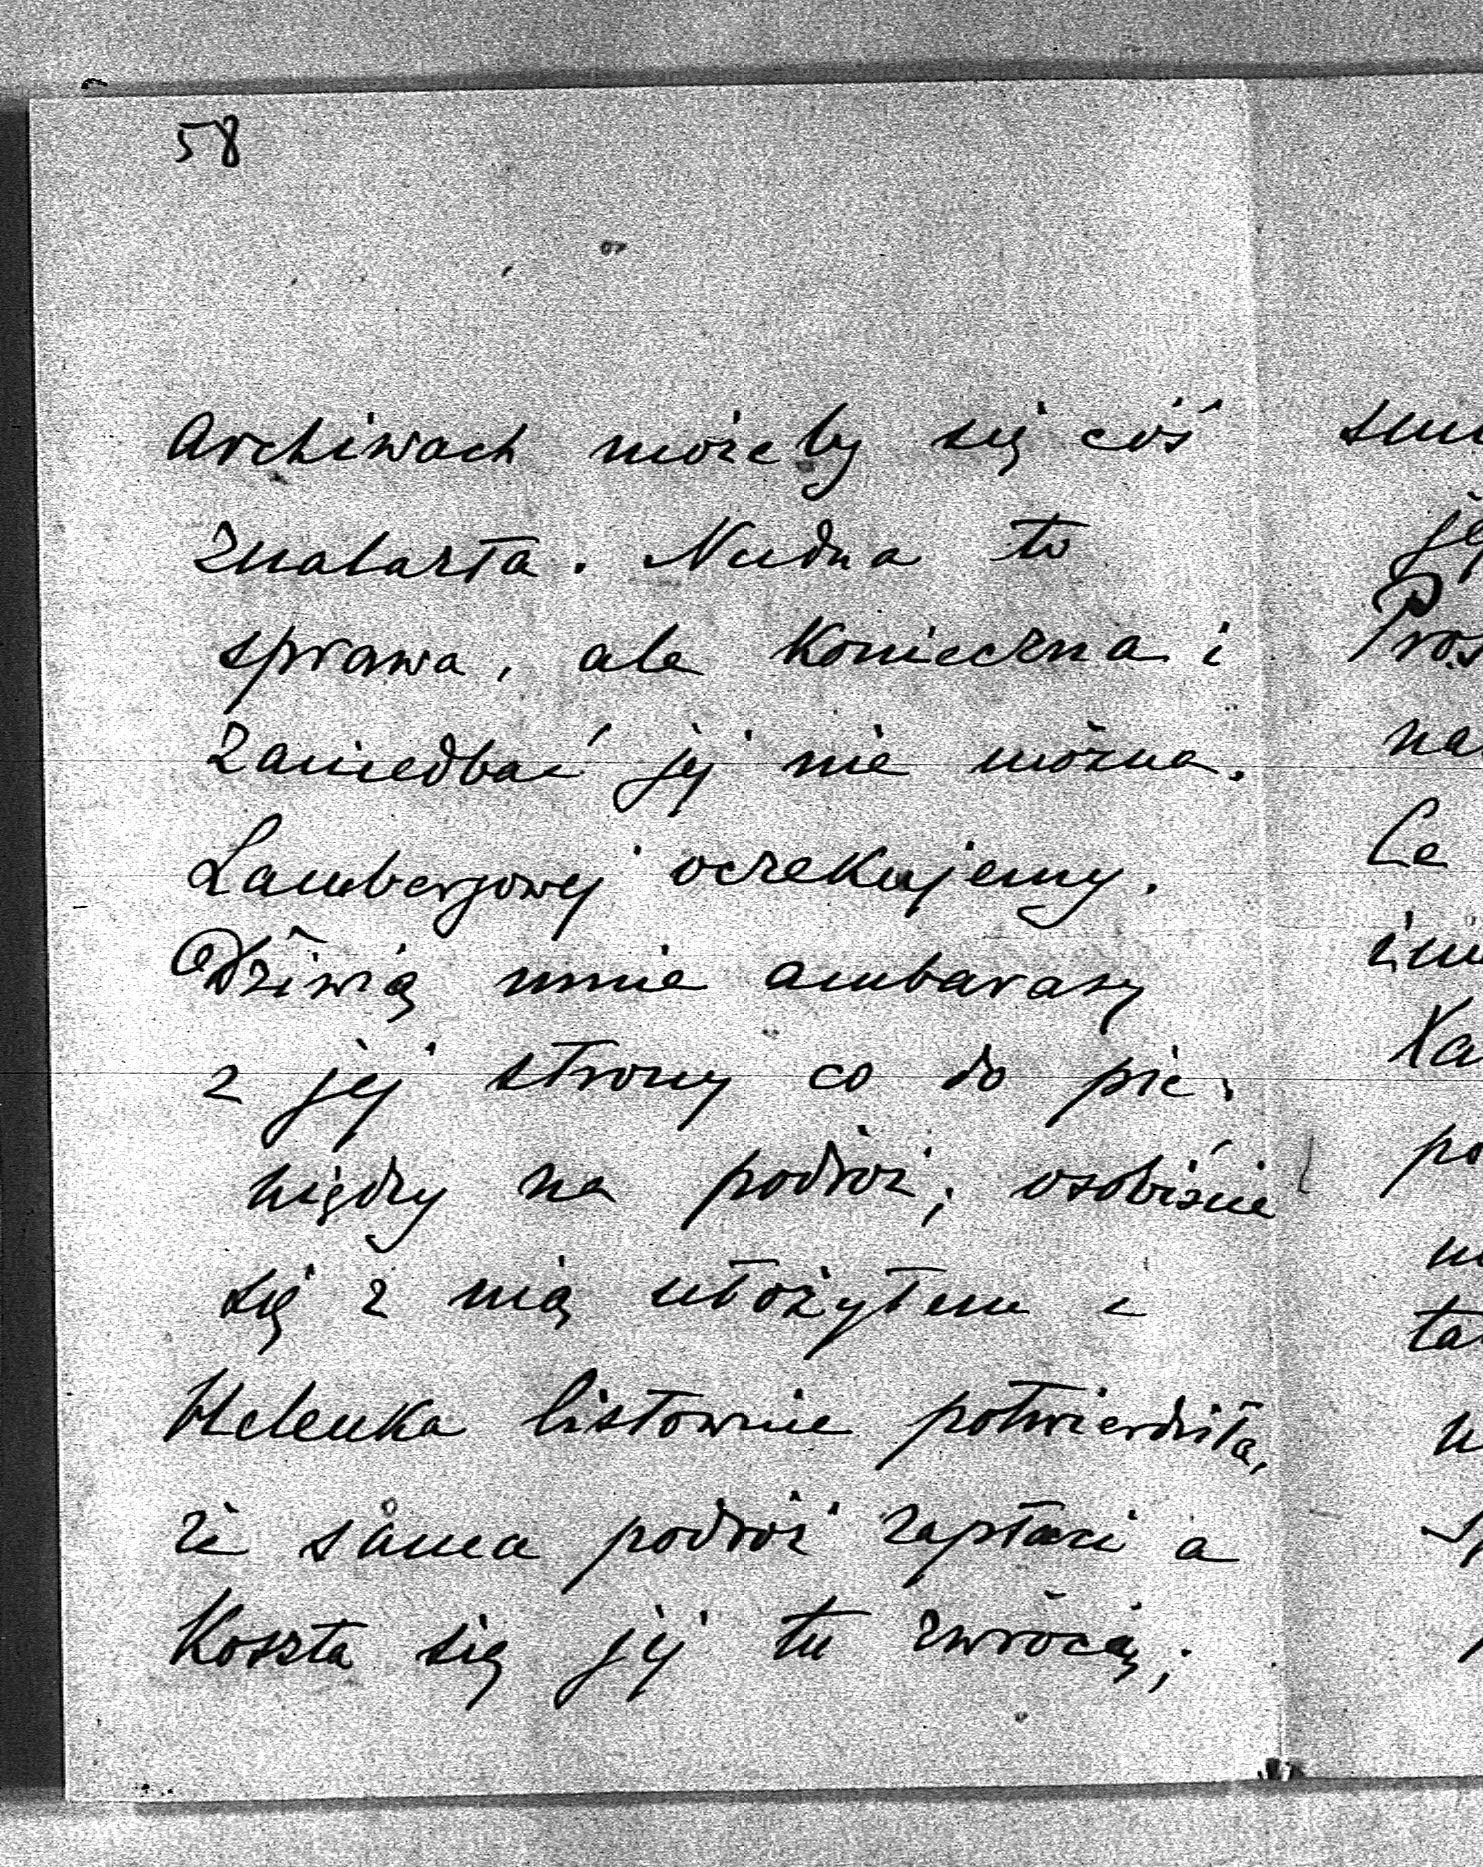 58
Archiwach możeby się coś
znalazła. Nudna to
sprawa, ale konieczna i
zaniedbać jej nie można.
Lambergowej oczekujemy.
Dziwią mnie ambarasy
z jej strony co do pie-
niędzy na podróż; osobiście
się z nią ułożyłem i
Helenka listownie potwierdziła,
że sama podróż zapłaci a
koszta się jej tu zwrócą;
na
Ce